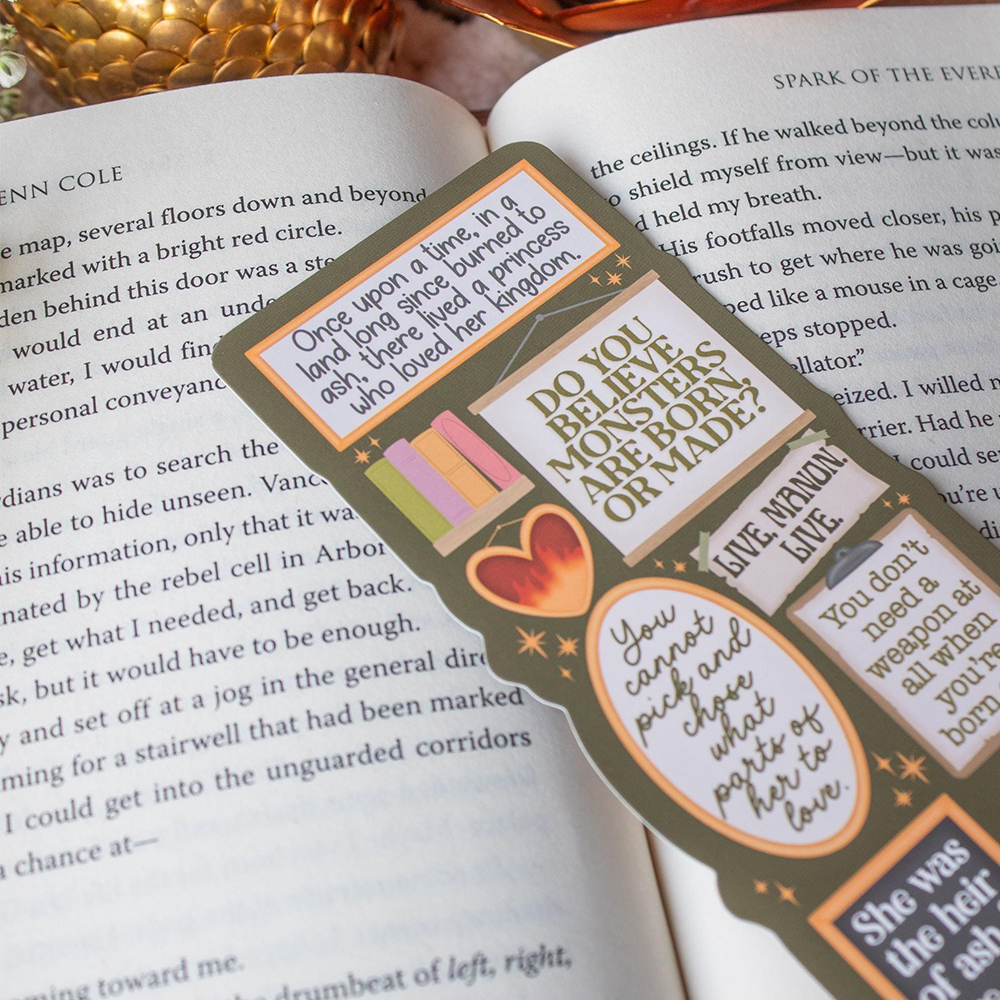 ENN COLE
map, several floors down and beyond
marked with a bright red circle.
den behind this door was a
would end at an
water, I would
personal
was to search the
able to hide unseen.
his information, only that it
nated by the rebel cell in
get what I needed, and get back.
sk, but it would have to be enough.
y and set off at a jog in the general
ming for a stairwell that had been marked
I could get into the unguarded corridors
a chance at—
oming toward me.
drumbeat of left, right,
SPARK OF THE
the ceilings. If he walked beyond the
to shield myself from view—but it was
held my breath.
His footfalls moved closer, his
rush to get where he was
ped like a mouse in a cage
eps stopped.
ellator.”
eized. I willed
rrier. Had he
could
Once upon a time, in a
land long since burned to
ash, there lived a princess
who loved her kingdom.
DO YOU
BELIEVE
MONSTERS
ARE BORN,
OR MADE?
LIVE, MANON.
LIVE.
You don't
need a
weapon at
all when
you're
born
You
cannot
pick and
chose
what
parts of
her to
love.
She was
the heir
of